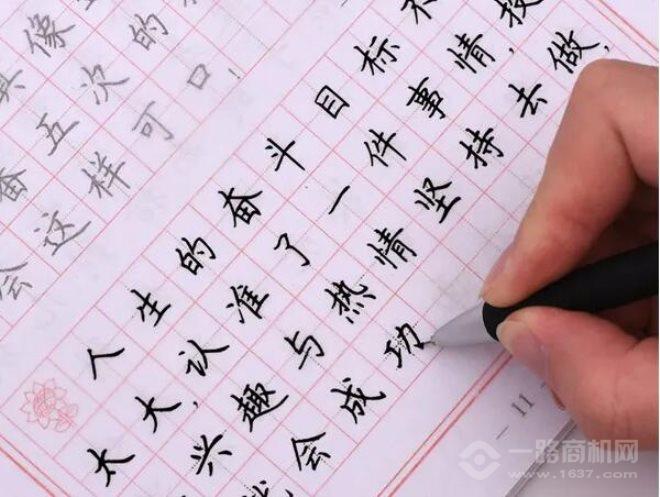 像
五次的
会这样可口!
人生的奋斗目标不
太大,认准了一件事情,投
兴趣与热情坚持去做,
就会成功
11
一路商机网
www.1637.com